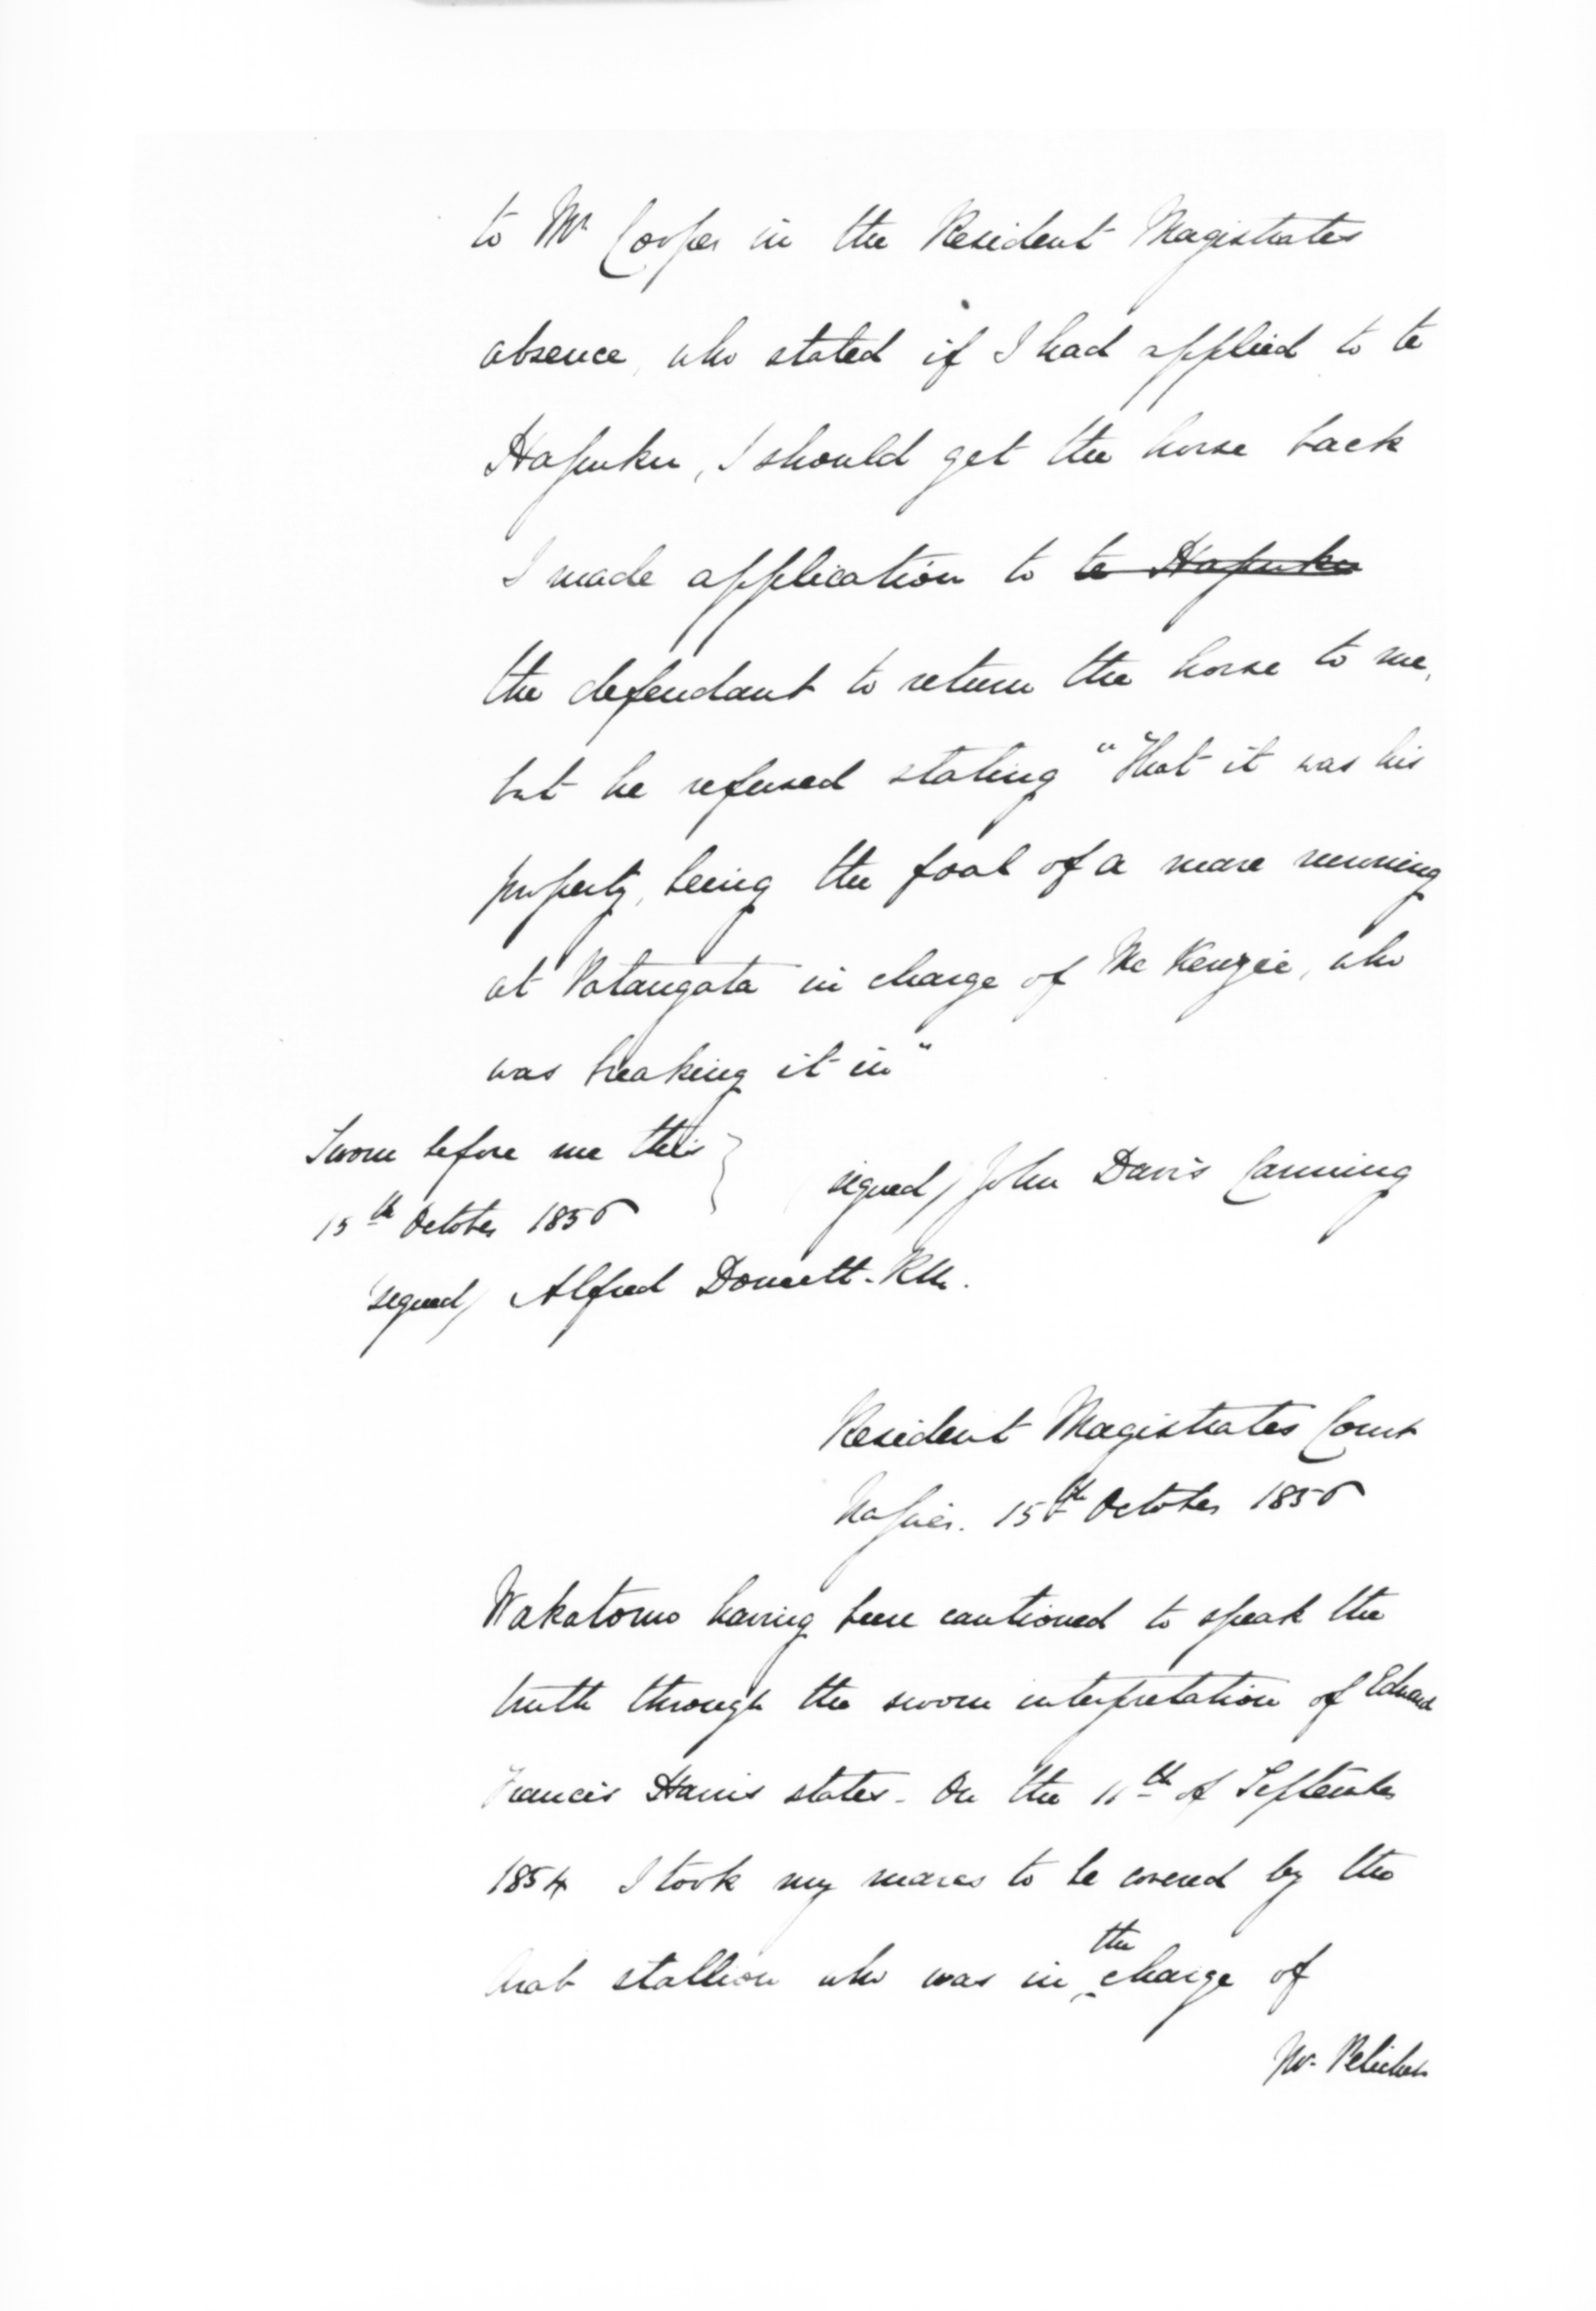 to Mr Cooper in the Resident Magistrates
absence, who stated if I had applied to te
Hapuku, I should get the horse back
I made application to te Hapuku
the defendant to return the horse to me,
but he refused stating "That it was his
property, being the foal of a mare running
at Patangata in charge of McKenzie, who
was breaking it in"
Sworn before me this
15th October 1856
signed/ John Davis Canning
signed/ Alfred Domett. RM.
Resident Magistrates Court
Napier. 15th October 1856
Wakatomo having been cautioned to speak the
truth through the sworn interpretation of Edward
Francis Harris states. On the 11th of September
1854 I took my mares to be covered by the
Arab stallion who was in the charge of
Mr.